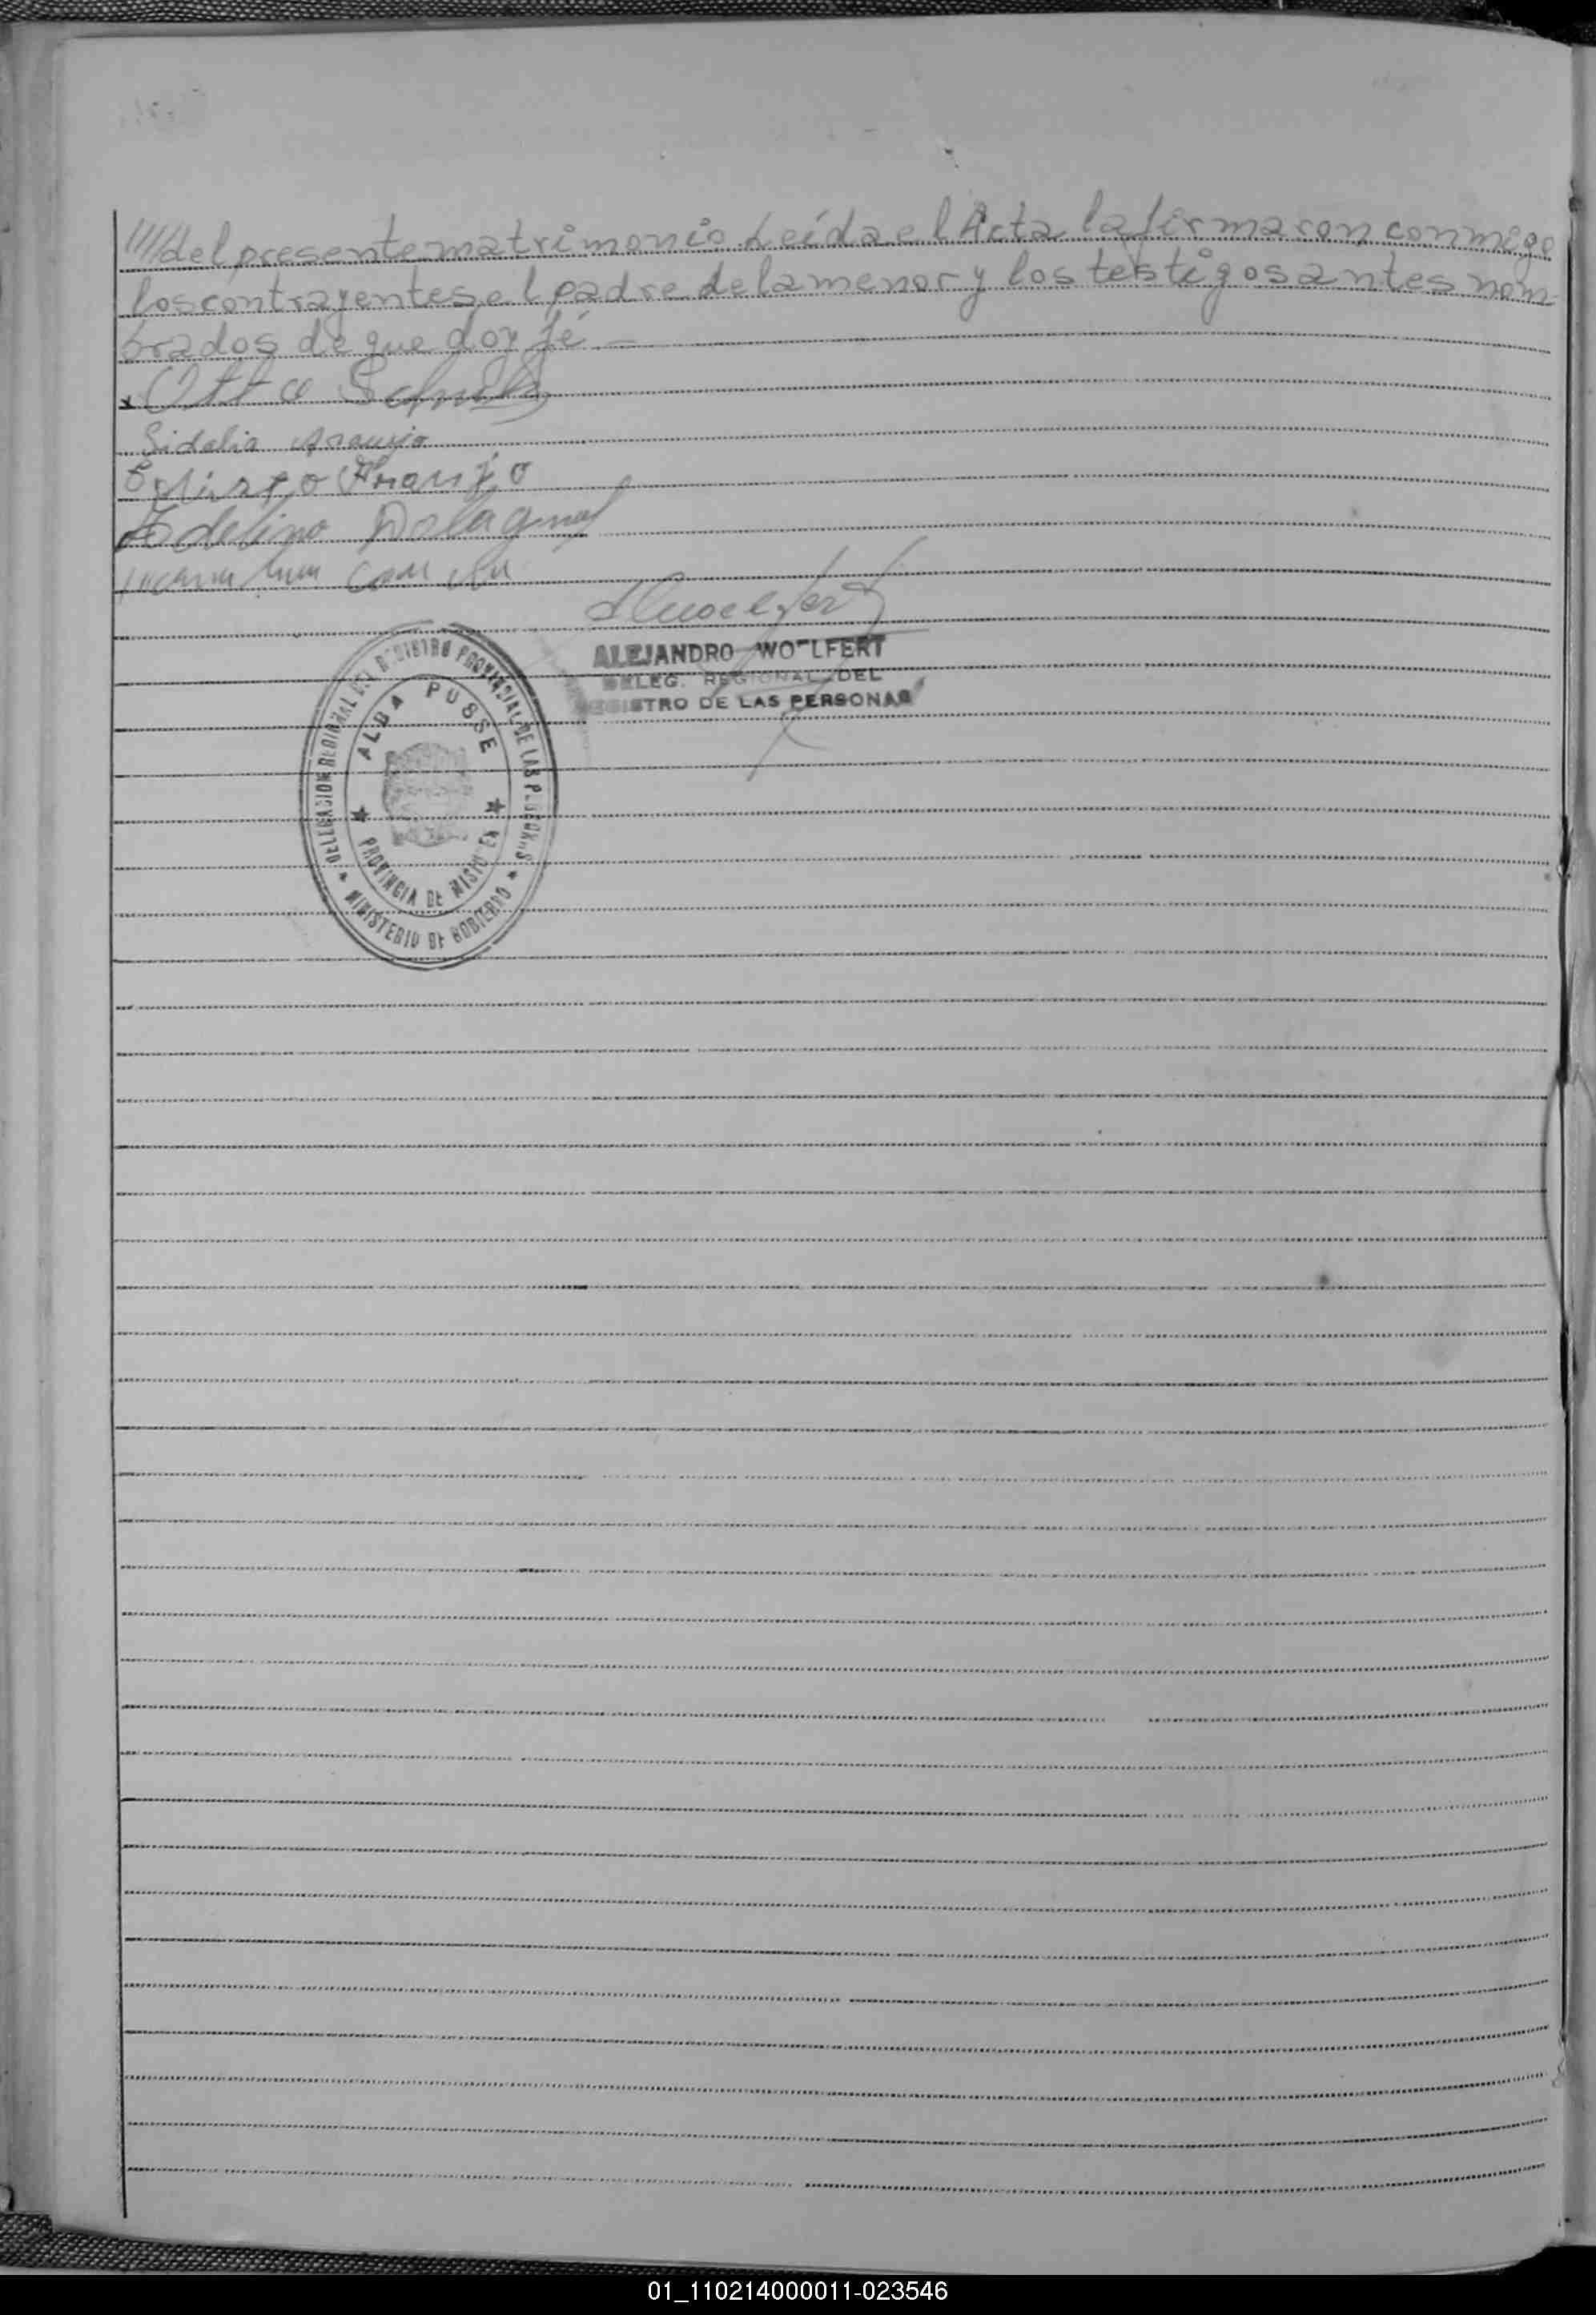 ////del presente matrimonio. Leída el Acta la firmaron conmigo
los contrayentes, el padre de la menor y los testigos antes nom-
brados de que doy fé. —
x Otto Schulz
Sidalia Araujo
Araujo
Adelino Dalagnol
ALEJANDRO WOELFERT
DELEG. REGIONAL DEL
REGISTRO DE LAS PERSONAS
DELEGACION REGIONAL DEL REGISTRO PROVINCIAL DE LAS PERSONAS
ALBA POSSE
PROVINCIA DE MISIONES
MINISTERIO DE GOBIERNO
01_110214000011-023546